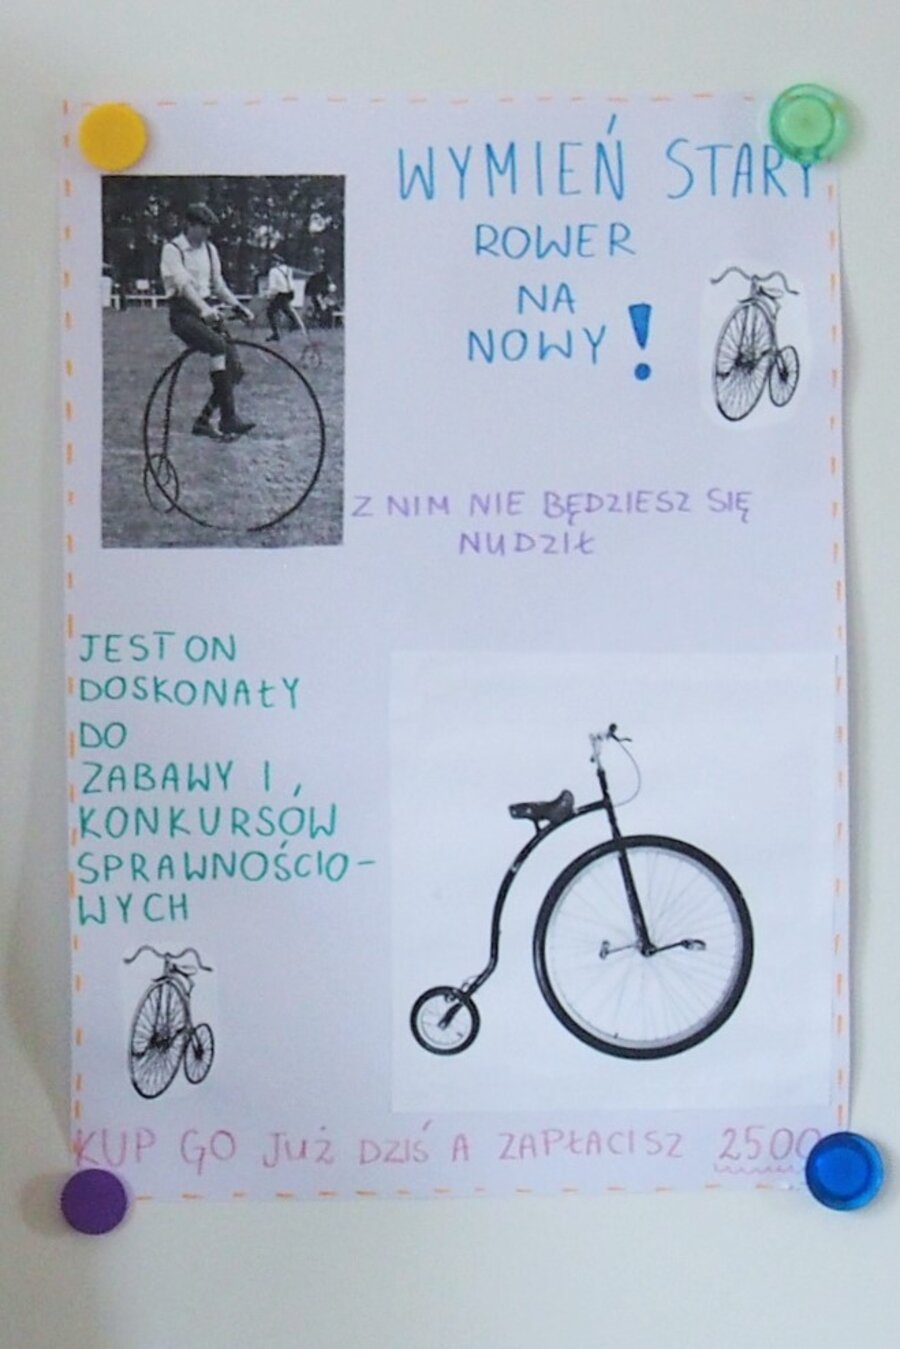 WYMIEŃ STARY
ROWER
NA
NOWY!
Z NIM NIE BĘDZIESZ SIĘ
NUDZIŁ
JEST ON
DOSKONAŁY
DO
ZABAWY I
KONKURSÓW
SPRAWNOŚCIO-
WYCH
KUP GO JUŻ DZIŚ A ZAPŁACISZ 2500